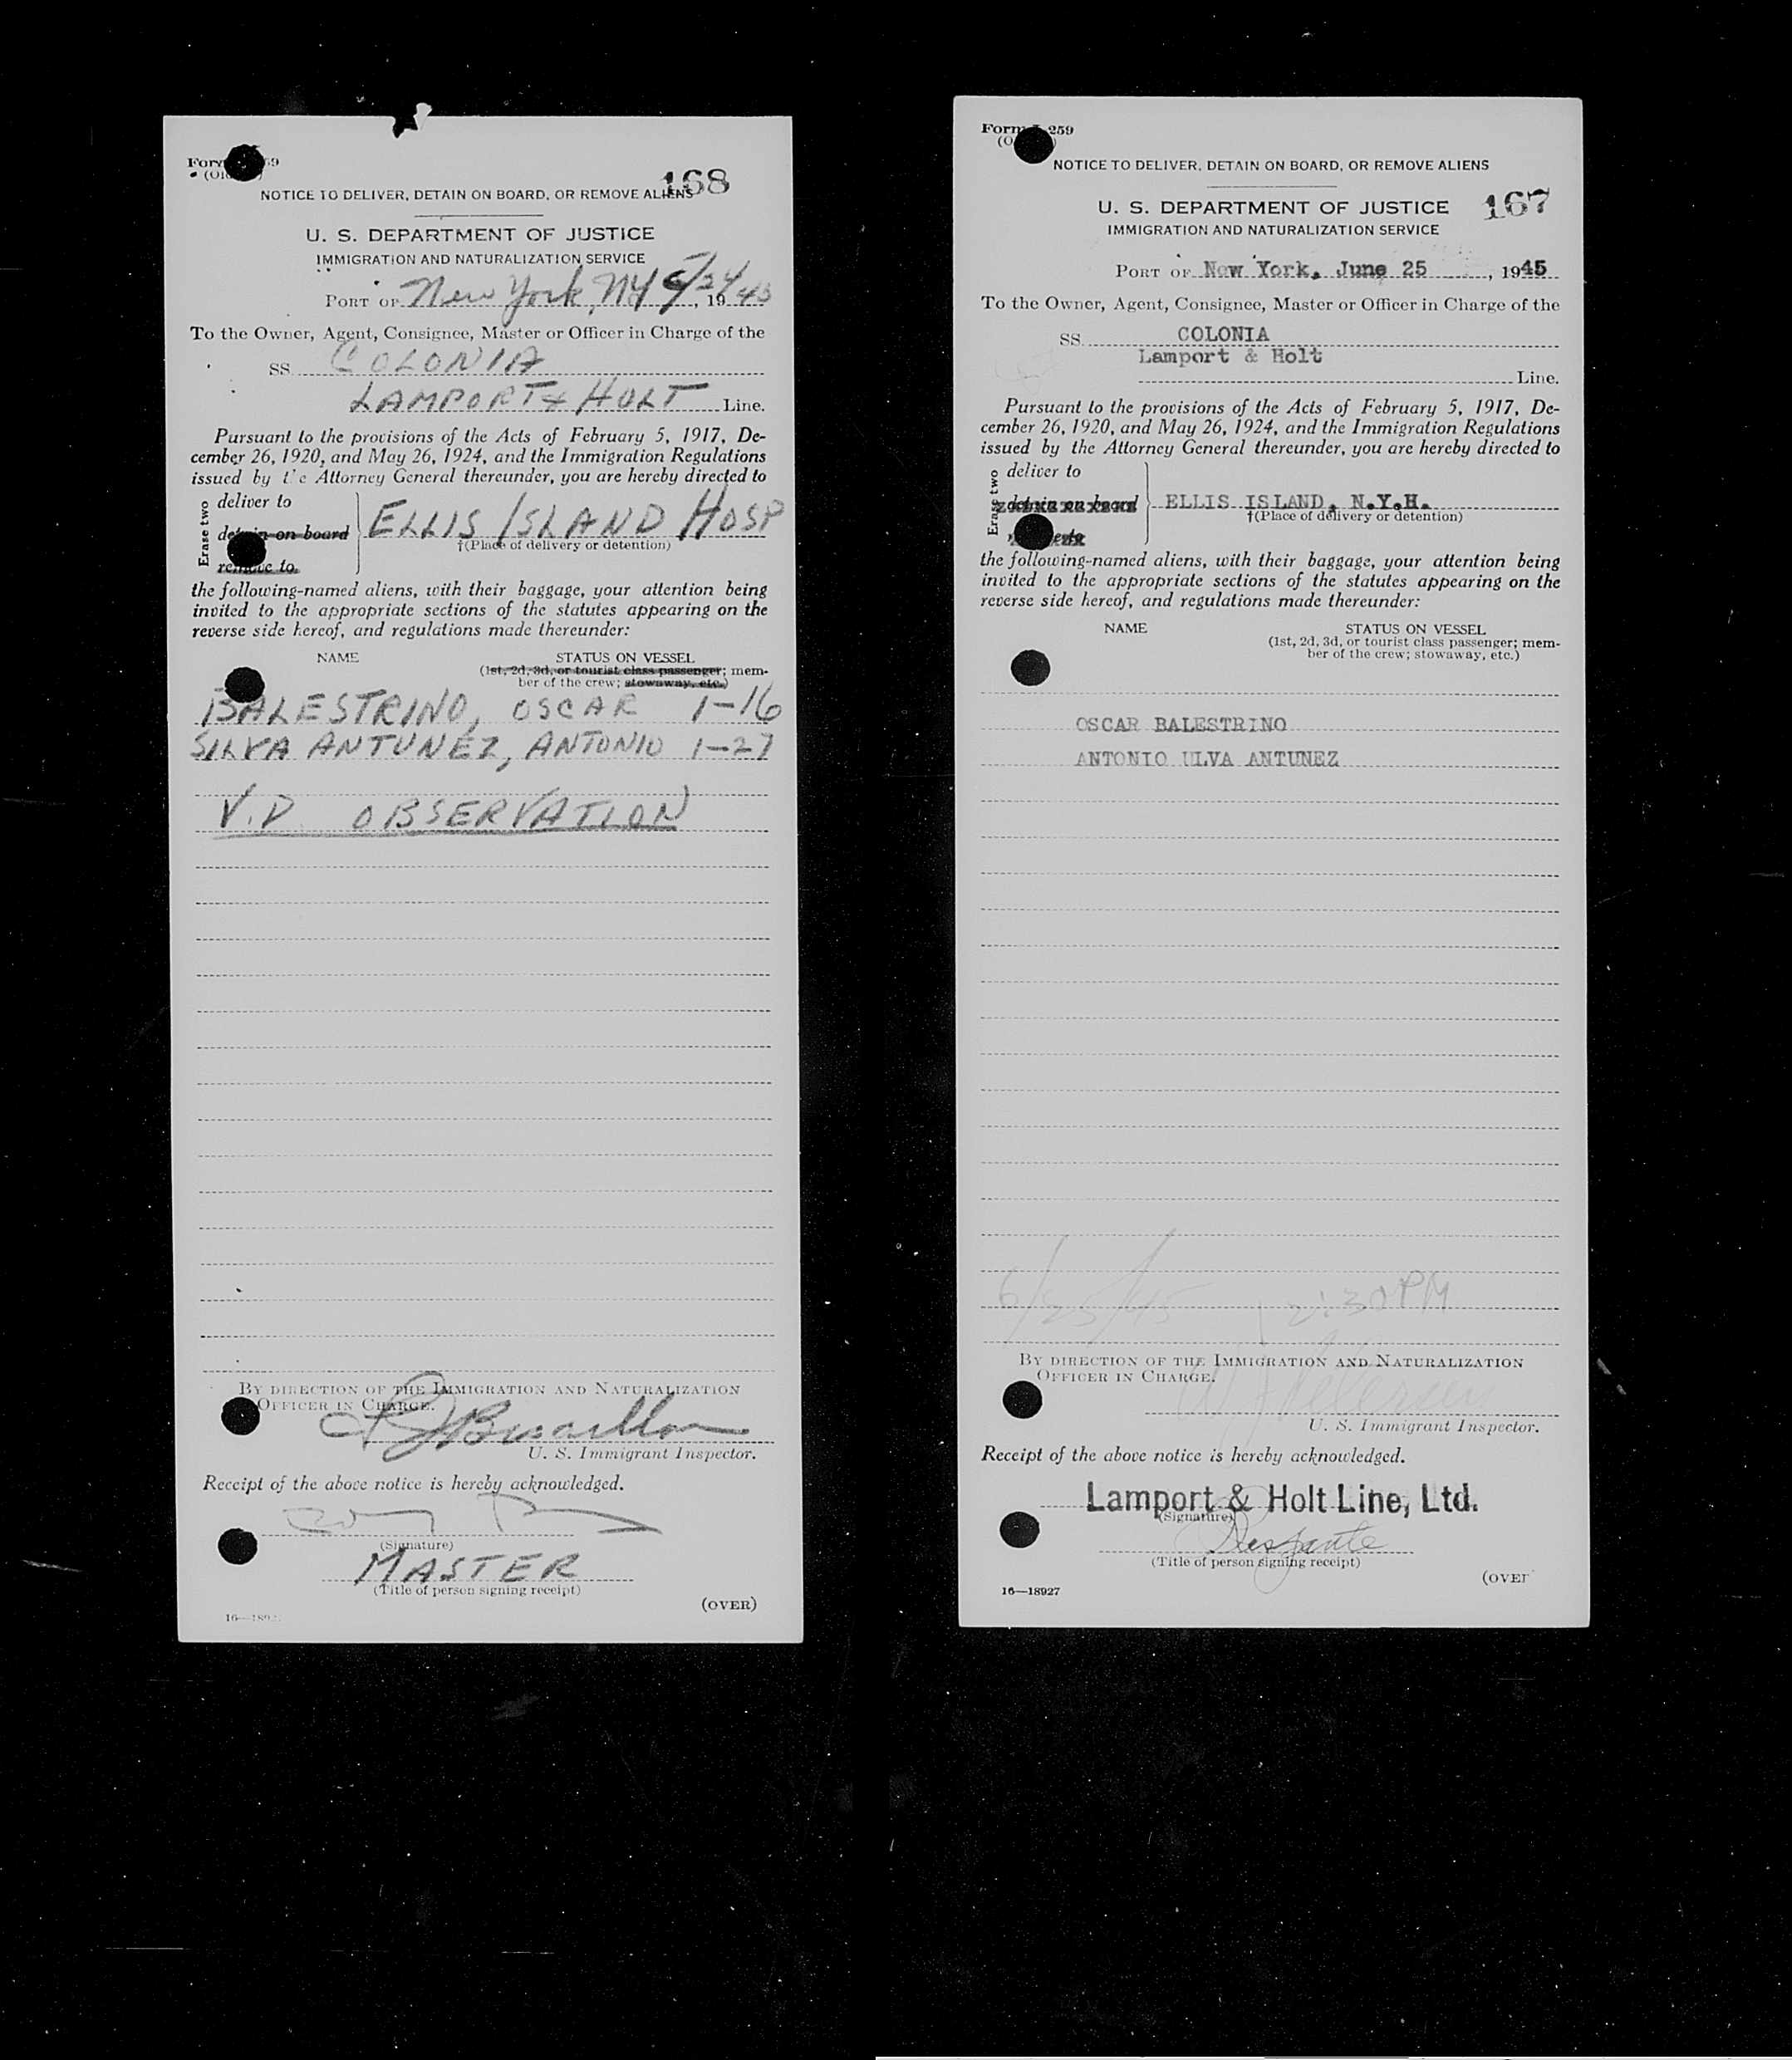 168
NOTICE TO DELIVER, DETAIN ON BOARD, OR REMOVE ALIENS
U. S. DEPARTMENT OF JUSTICE
IMMIGRATION AND NATURALIZATION SERVICE
PORT OF New York, NY 1945
To the Owner, Agent, Consignee, Master or Officer in Charge of the
SS COLONIA
LAMPORT & HOLT Line.
Pursuant to the provisions of the Acts of February 5, 1917, De-
cember 26, 1920, and May 26, 1924, and the Immigration Regulations
issued by the Attorney General thereunder, you are hereby directed to
Erase two
deliver to
detain on board
ELLIS ISLAND HOSP
†(Place of delivery or detention)
remove to
the following-named aliens, with their baggage, your attention being
invited to the appropriate sections of the statutes appearing on the
reverse side hereof, and regulations made thereunder:
NAME STATUS ON VESSEL
(1st, 2d, 3d, or tourist class passenger; mem-
ber of the crew; stowaway, etc.)
BALESTRINO, OSCAR 1-16
SILVA ANTUNEZ, ANTONIO 1-27
V.D. OBSERVATION
BY DIRECTION OF THE IMMIGRATION AND NATURALIZATION
OFFICER IN CHARGE.
U. S. Immigrant Inspector.
Receipt of the above notice is hereby acknowledged.
(Signature)
MASTER
(Title of person signing receipt)
(OVER)
Form 259
NOTICE TO DELIVER, DETAIN ON BOARD, OR REMOVE ALIENS
U. S. DEPARTMENT OF JUSTICE 167
IMMIGRATION AND NATURALIZATION SERVICE
PORT OF New York, June 25, 1945
To the Owner, Agent, Consignee, Master or Officer in Charge of the
SS COLONIA
Lamport & Holt
Line.
Pursuant to the provisions of the Acts of February 5, 1917, De-
cember 26, 1920, and May 26, 1924, and the Immigration Regulations
issued by the Attorney General thereunder, you are hereby directed to
Erase two
deliver to
detain on board
ELLIS ISLAND, N.Y.H.
†(Place of delivery or detention)
the following-named aliens, with their baggage, your attention being
invited to the appropriate sections of the statutes appearing on the
reverse side hereof, and regulations made thereunder:
NAME STATUS ON VESSEL
(1st, 2d, 3d, or tourist class passenger; mem-
ber of the crew; stowaway, etc.)
OSCAR BALESTRINO
ANTONIO ULVA ANTUNEZ
6/25/45 2:30 PM
BY DIRECTION OF THE IMMIGRATION AND NATURALIZATION
OFFICER IN CHARGE.
U. S. Immigrant Inspector.
Receipt of the above notice is hereby acknowledged.
Lamport & Holt Line, Ltd.
(Signature)
(Title of person signing receipt)
(OVER
16—18927